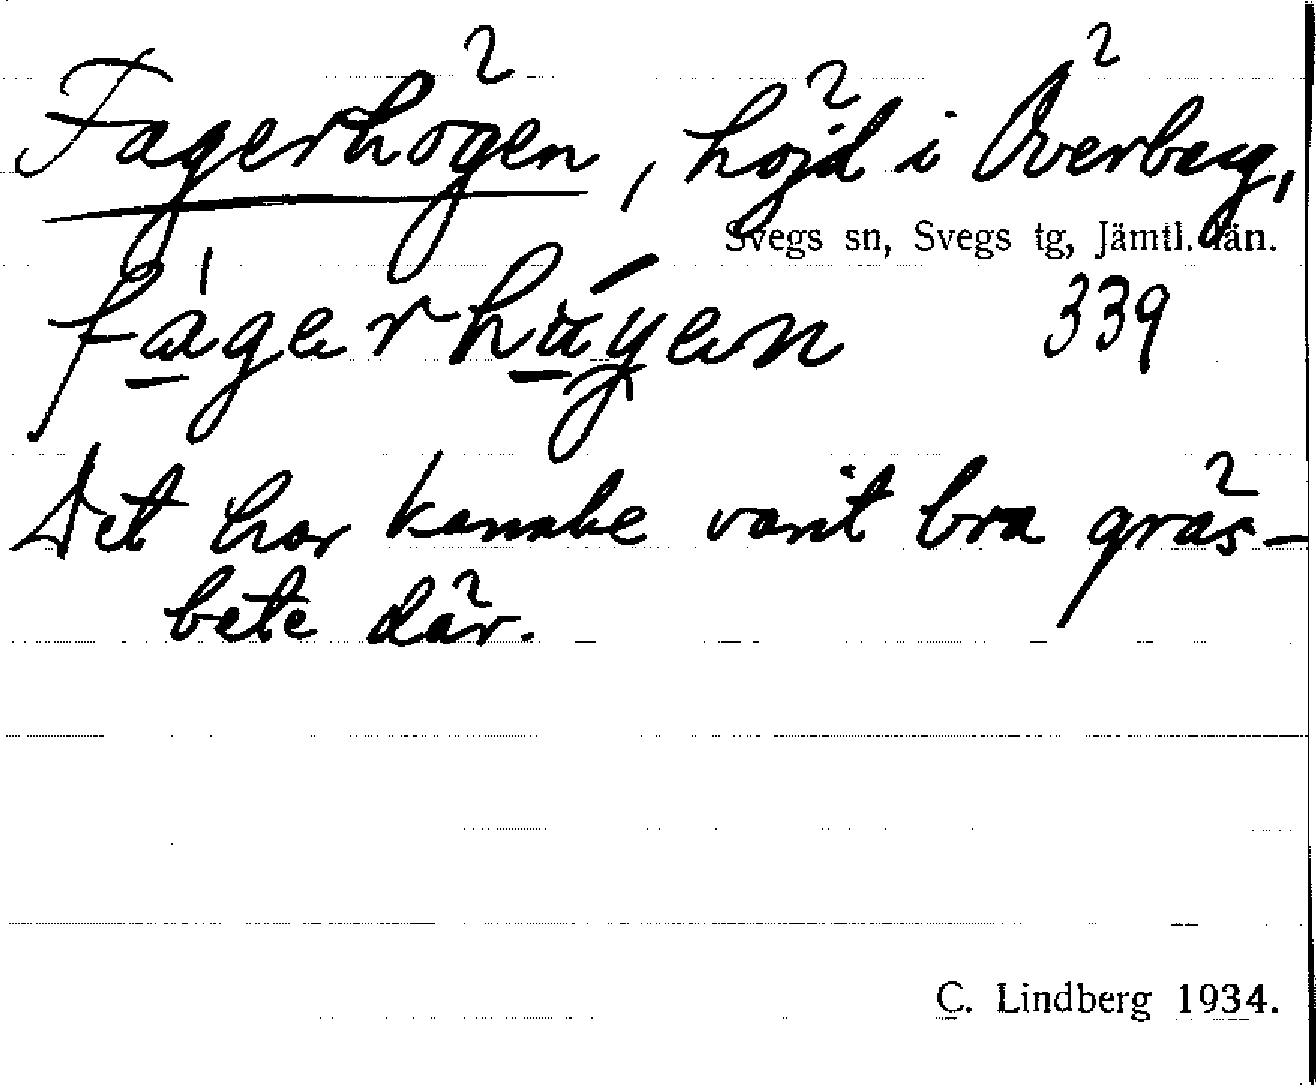 Fagerhögen, höjd i Överberg,
Svegs sn, Svegs tg, Jämtl. län.
339
Det har kanske varit bra gräs-
bete där.
C. Lindberg 1934.